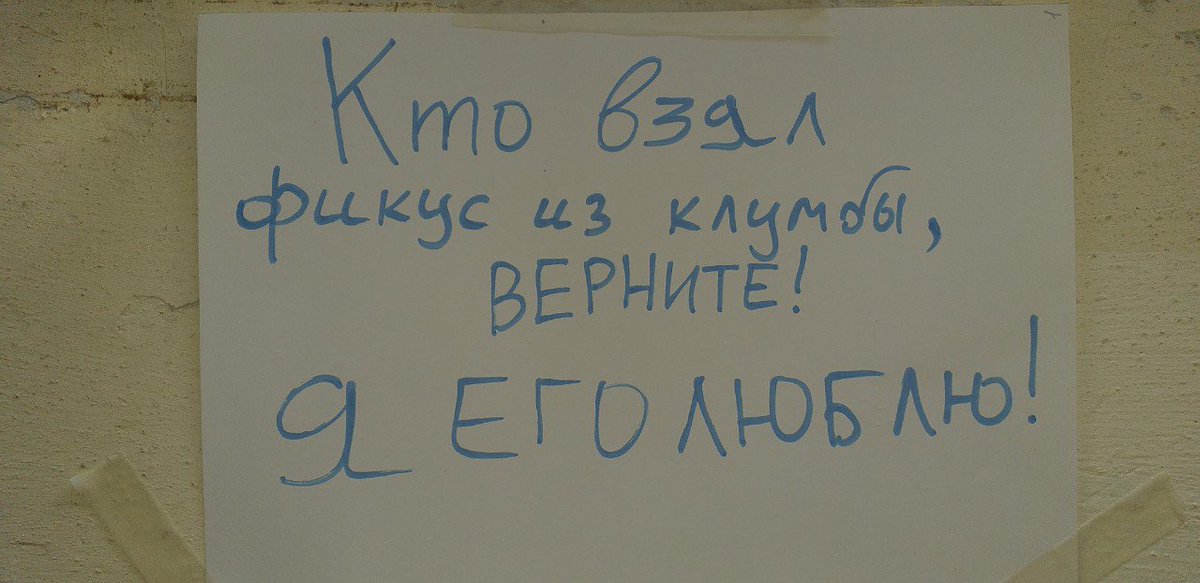 Кто взял
фикус из клумбы,
ВЕРНИТЕ!
Я ЕГО ЛЮБЛЮ!